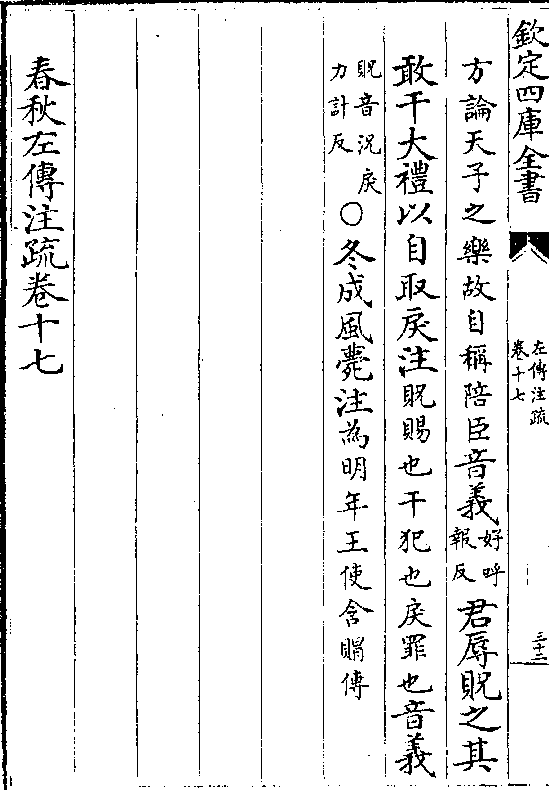 欽定四庫全書
左傳注疏
卷十七
三十二
方論天子之樂故自稱陪臣音義好呼報反君辱貺之其
敢干大禮以自取戾注貺賜也干犯也戾罪也音義
貺音況戾力計反〇冬成風薨注為明年王使含賵傳
春秋左傳注疏卷十七